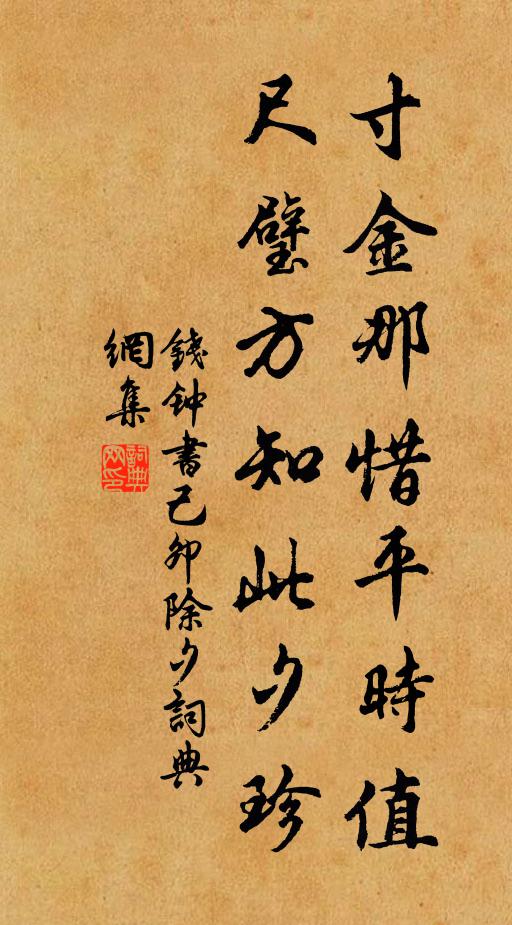 寸金那惜平時值
尺璧方知此夕珍
錢鈡書己卯除夕詞典
網集
詞典
网印